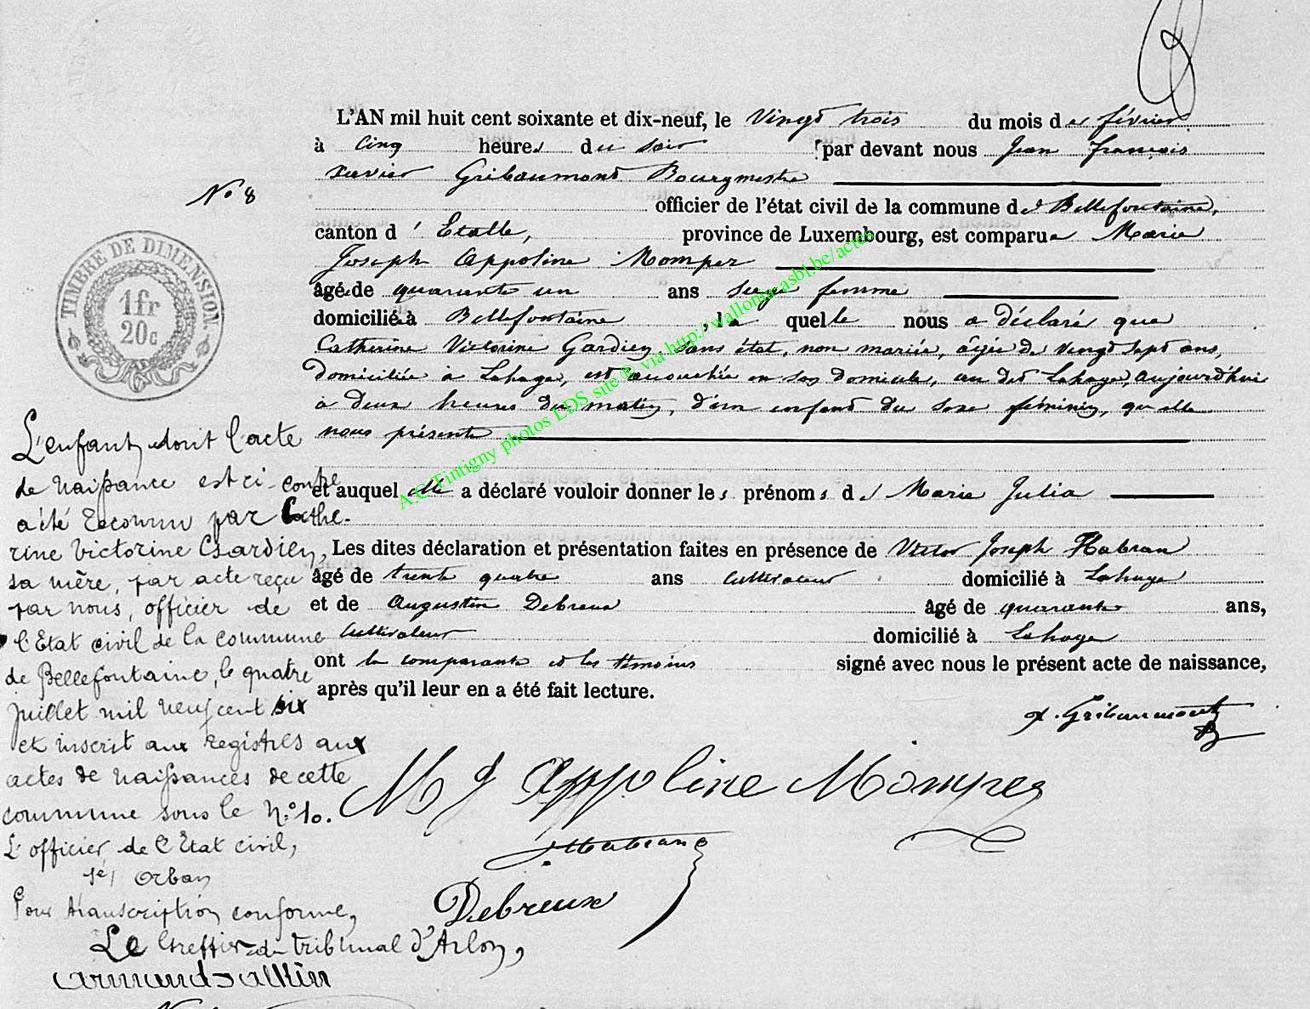 L'AN mil huit cent soixante et dix-neuf, le vingt trois du mois de février
à cinq heures du soir par devant nous Jean François
Xavier Gribaumont Bourgmestre
officier de l'état civil de la commune de Bellefontaine,
canton d'Etalle, province de Luxembourg, est comparue Marie
Joseph Appoline Mompez
âgée de quarante un ans sage femme
domiciliée à Bellefontaine, la quelle nous a déclaré que
Catherine Victorine Gardien, sans état, non mariée, âgée de vingt sept ans,
domiciliée à Lahage, est accouchée en son domicile, au dit Lahage, aujourd'hui
à deux heures du matin, d'un enfant du sexe féminin, qu'elle
nous présente
et auquel elle a déclaré vouloir donner les prénoms de Marie Julia
Les dites déclaration et présentation faites en présence de Victor Joseph Habran
âgé de trente quatre ans cultivateur domicilié à Lahage
et de Augustin Debreux âgé de quarante ans,
cultivateur domicilié à Lahage
ont la comparante et les témoins signé avec nous le présent acte de naissance,
après qu'il leur en a été fait lecture.
x. Gribaumont
M J Appoline Mompez
J Habran
Debreux
N° 8
TIMBRE DE DIMENSION.
1fr
20c
L'enfant dont l'acte
de naissance est ci-contre
a été reconnu par Cathe-
rine Victorine Gardien,
sa mère, par acte reçu
par nous, officier de
l'Etat civil de la commune
de Bellefontaine, le quatre
juillet mil neuf cent six
et inscrit aux registres aux
actes de naissances de cette
commune sous le N° 10.
L'officier de l'Etat civil,
sé/ Orban
Pour transcription conforme,
Le Greffier du tribunal d'Arlon,
A.C. Tintigny photos EDS site & via http://wallonia-asbl.be/actes